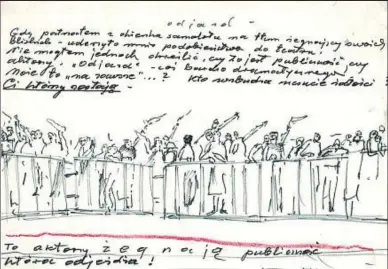 odjazd -
Gdy patrzałem z okienka samolotu na tłum żegnający swoich
bliskich - uderzyło mnie podobieństwo do teatru.
Nie mogłem jednak określić, czy to jest publiczność, czy
aktorzy. "Odjazd" - coś bardzo dramatycznego,
"na zawsze"...? Kto wzbudza uczucie żałości?
Ci którzy zostają -
To aktorzy żegnają publiczność
która odjeżdża!